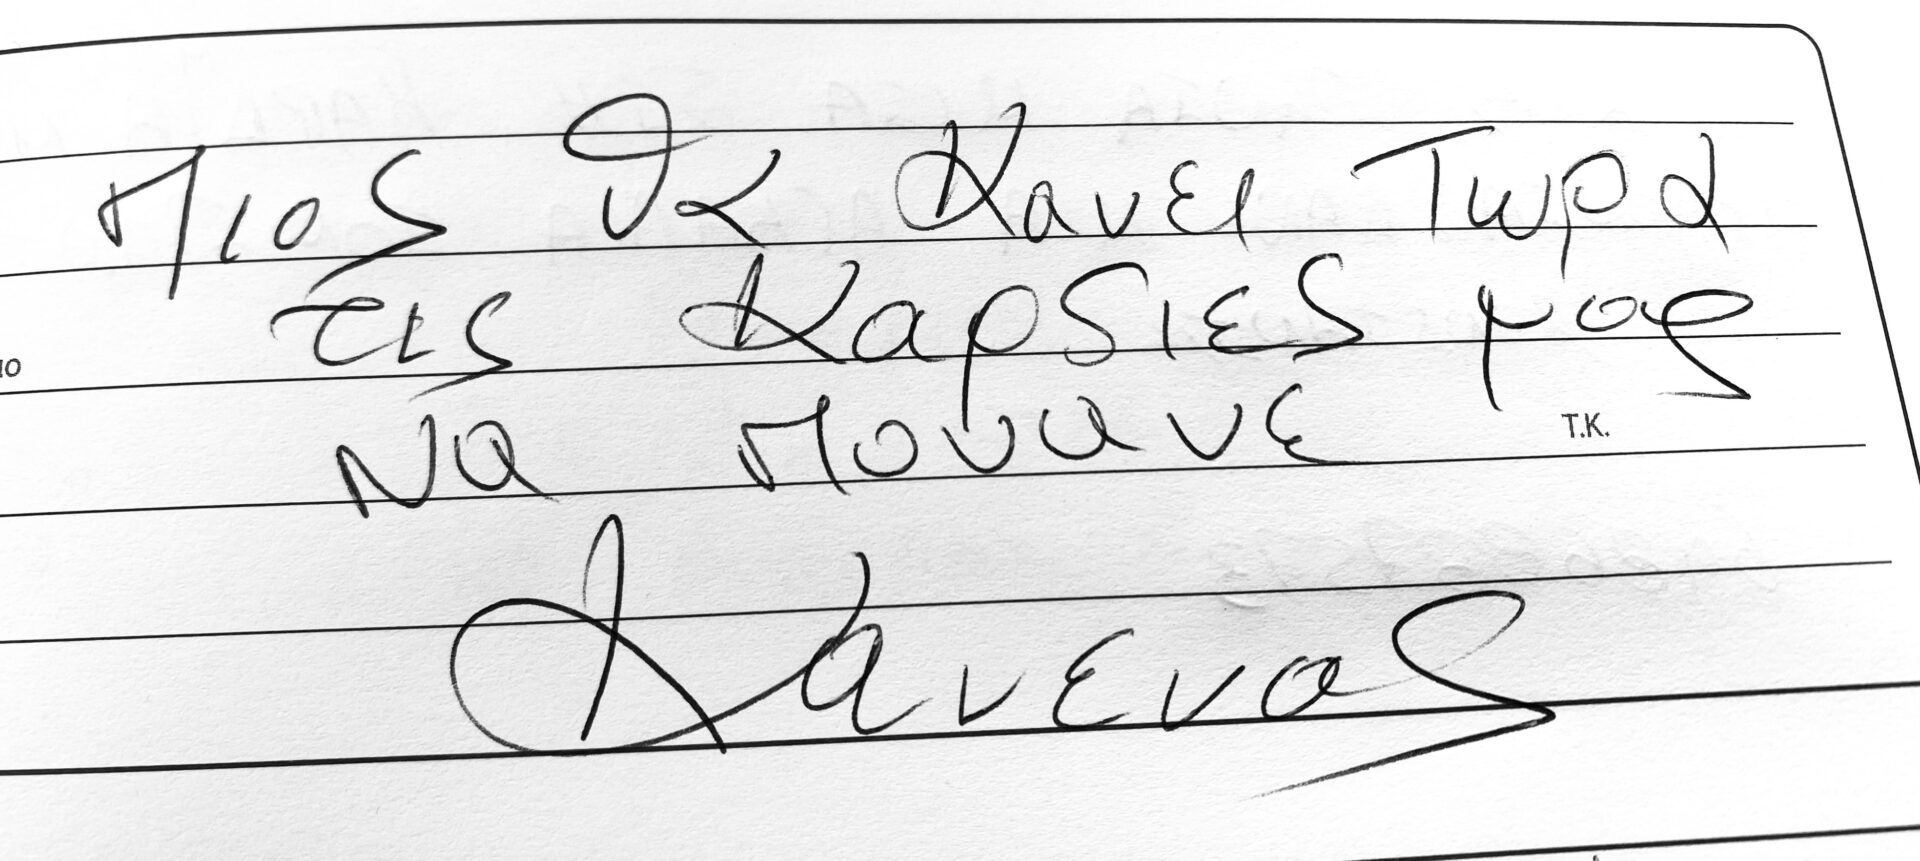 Πιος θα Κανει Τωρα
τις Καρδιες μας
Να πονανε
Τ.Κ.
Κάνενας